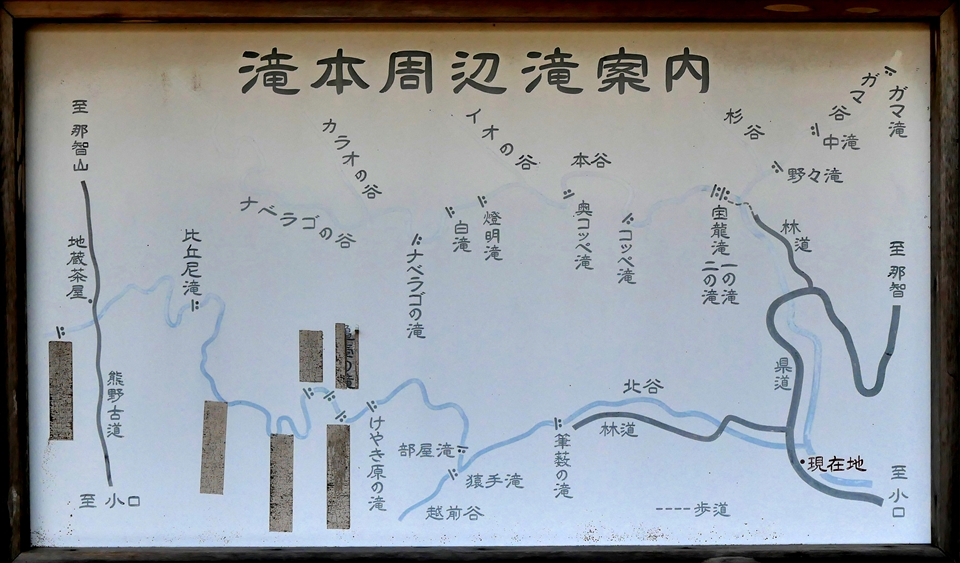 滝本周辺滝案内
至 那智山
地蔵茶屋
熊野古道
至 小口
比丘尼滝
ナベラゴの谷
カラオの谷
イオの谷
本谷
杉谷
ガマ谷
ガマ滝
中滝
野々滝
ナベラゴの滝
白滝
燈明滝
奥コッペ滝
コッペ滝
宝龍滝
一の滝
二の滝
林道
至 那智
県道
けやき原の滝
部屋滝
猿手滝
越前谷
筆薮の滝
北谷
林道
現在地
至 小口
歩道